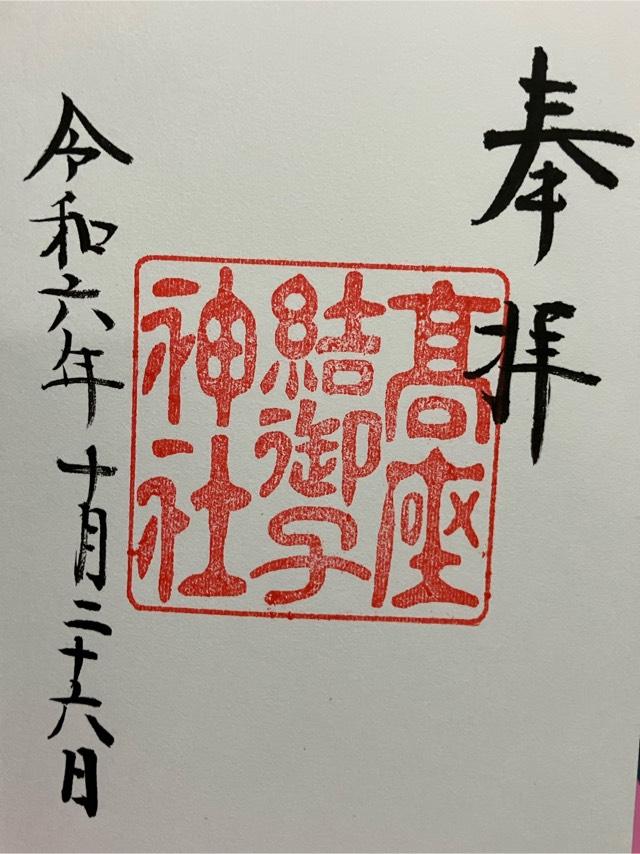 奉拝
髙座
結御子
神社
令和六年十月二十六日